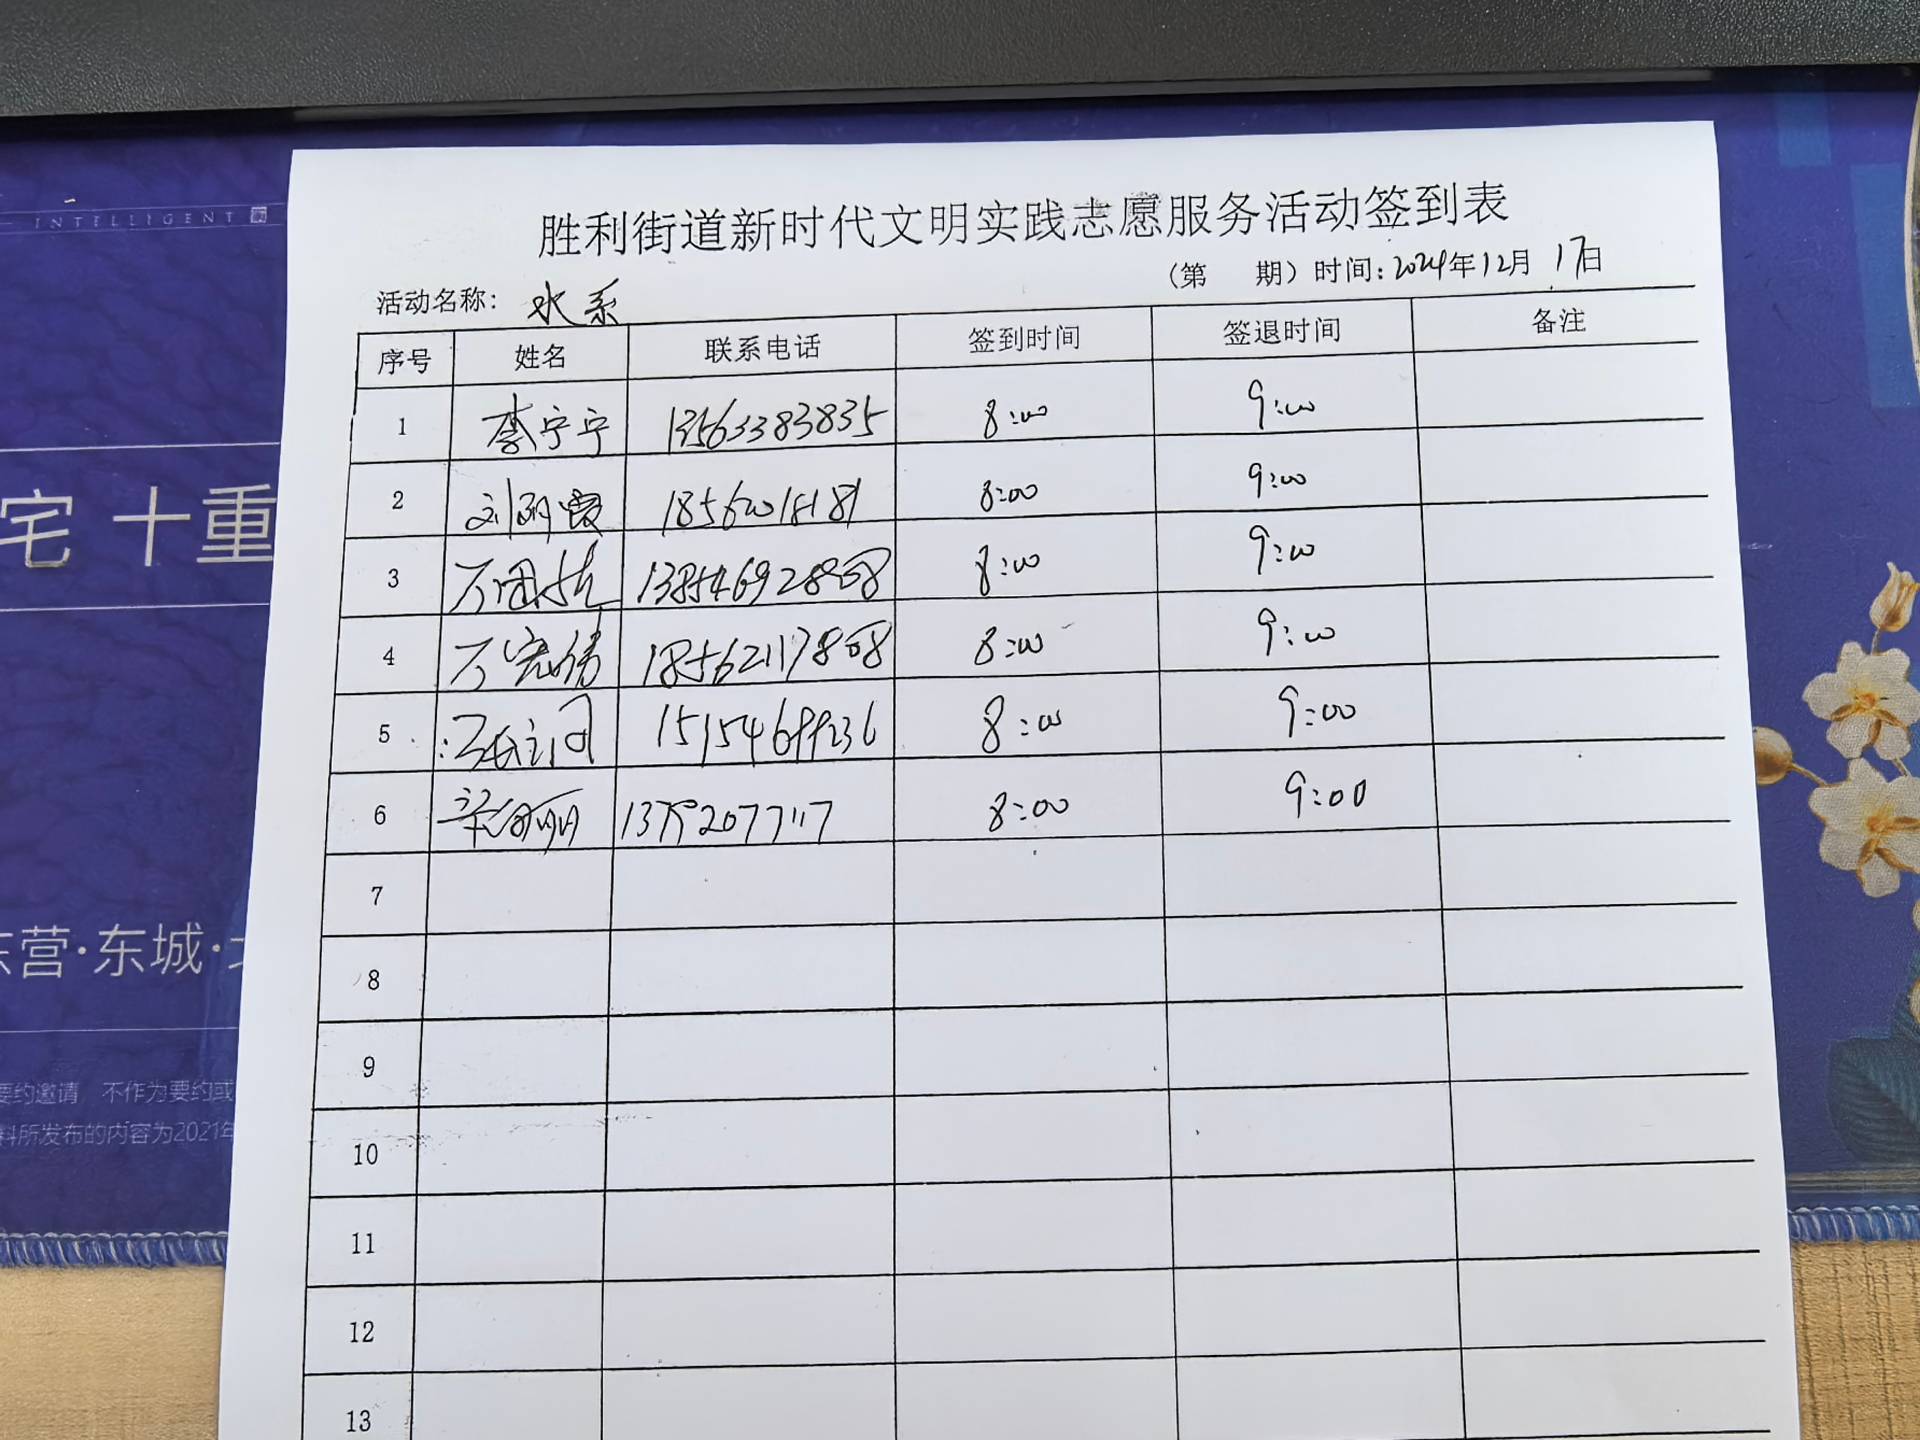 INTELLIGENT
宅 十重
营·东城·
要约邀请 不作为要约或
料所发布的内容为2021年
胜利街道新时代文明实践志愿服务活动签到表
活动名称: 水系 (第 期) 时间: 2024年12月17日
序号 姓名 联系电话 签到时间 签退时间 备注
1 李宁宁 13563383835 8:00 9:00
2 刘丽霞 8:00 9:00
3 8:00 9:00
4 8:00 9:00
5 8:00 9:00
6 8:00 9:00
7
8
9
10
11
12
13